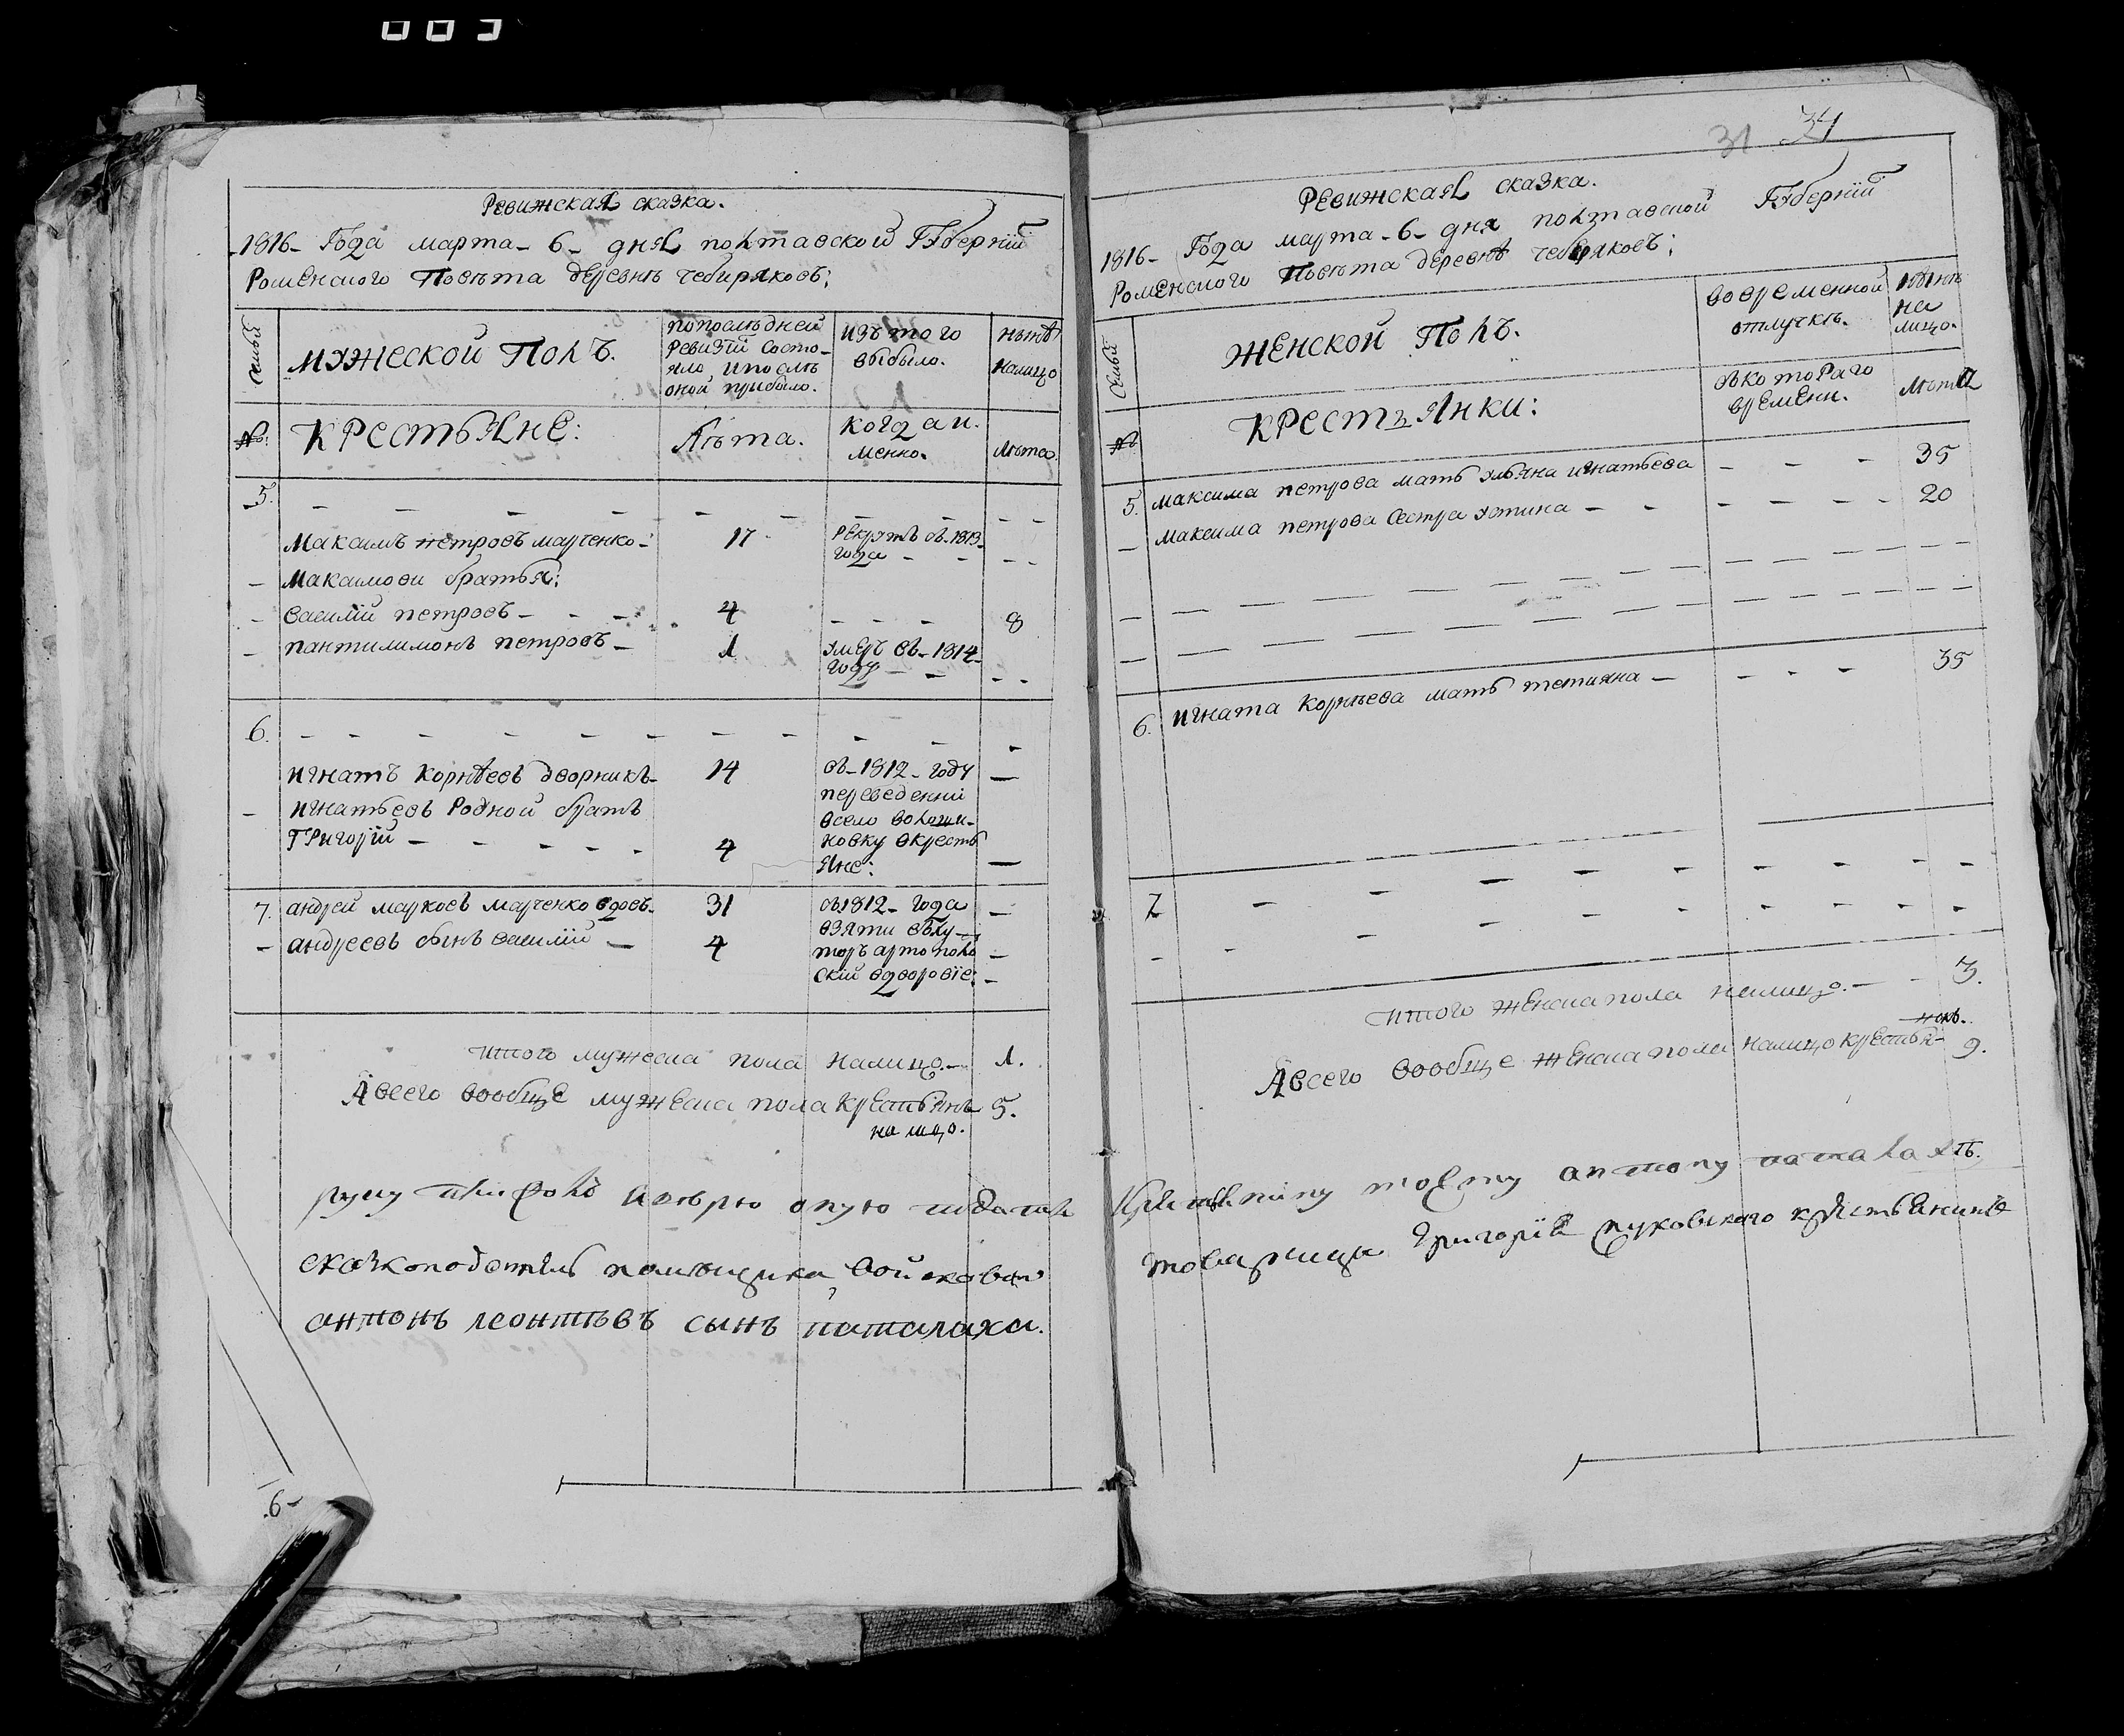 003
Ревижская сказка.
1816- Года марта- 6- дня полтавской Губернїй
Роменского Повѣта деревнѣ чебиряковъ;
Семьи
мужеской Полъ.
попослѣдней
Ревизїй Состо-
яло ипослѣ
оной прибыло.
изъ того
выбыло.
нынѣ
налицо
№:
КРестьяне:
Лѣта.
когда и.
менно.
Лѣта.
5.
Максимъ петровъ марченко-
17
Рекрутъ въ-1813-
года
Максимови братья:
Василїй петровъ
4
8
пантилимонъ петровъ
1
умеръ въ-1814-
году
6.
игнатъ корнѣевъ дворникъ-
14
въ-1812-году
переведенни
игнатьевъ Родной братъ
всело воложи-
Григорїй
4
новку вкресть
Яне:
7.
андрей марковъ марченко вдовъ-
31
въ1812- года
взяти
андреевъ сынъ василїй
4
итого мужеска пола налицо.-
1.
Авсего вообще мужеска пола Крестьянъ
5.
на лицо.
сказкоподатель помещика войсковаго
антонъ леонтьевъ сынъ паталаха.
6-
31 34
Ревижская сказка.
1816- Года марта-6- дня полтавской Губернїй
Роменского Повѣта деревнѣ чебиряковъ;
Семьи
женской Полъ.
вовременной
отлучкѣ.
нынѣ
на
лицо.
№
КРестьянки:
съкотораго
времени.
Лѣта
5.
максима петрова мать ульяна игнатьева
35
максима петрова Сестра устина
20
6.
игната корнѣева мать тетияна
35
7
итого женска пола налицо.
3.
Авсего вообще женска пола налицо крестья-
нокъ.
9.
моему антону паталахѣ.
товарища Григорїя пуковского крестьянинъ